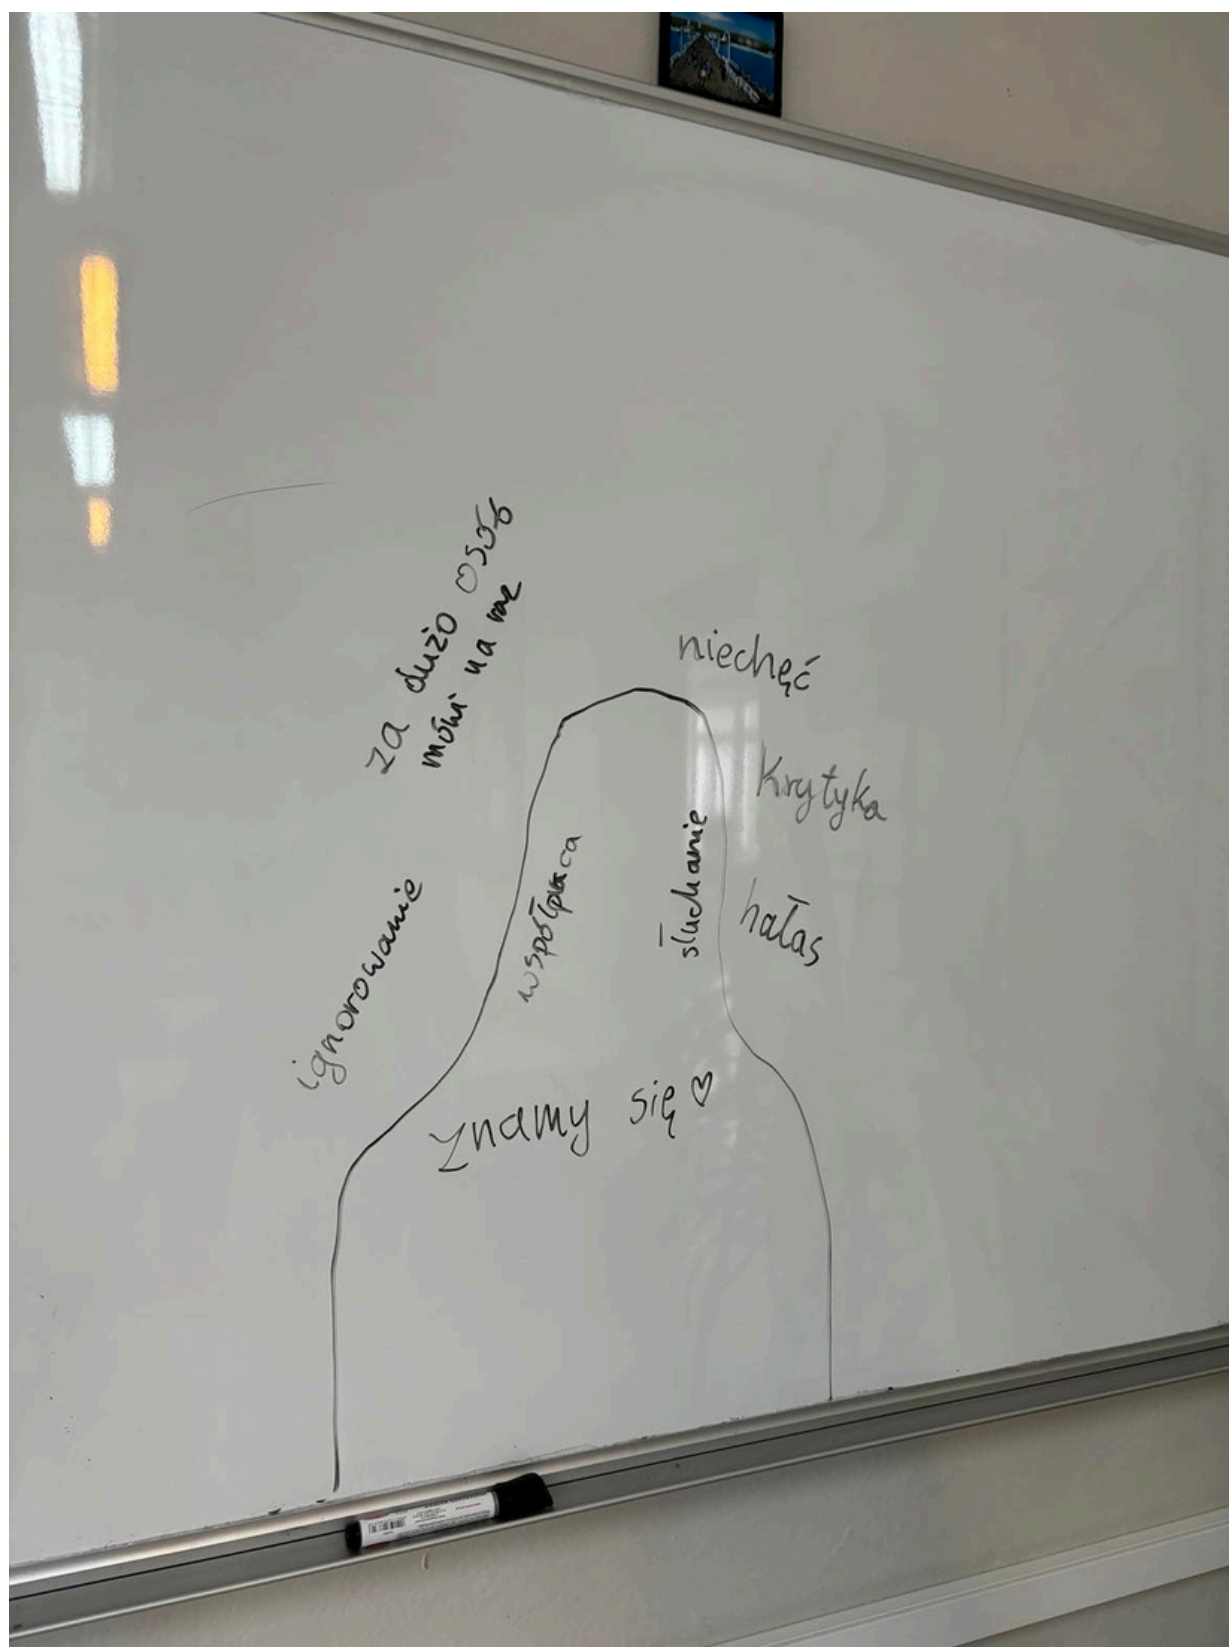 za dużo osób
mówi na raz
niechęć
krytyka
hałas
ignorowanie
współpraca
słuchanie
znamy się ♡